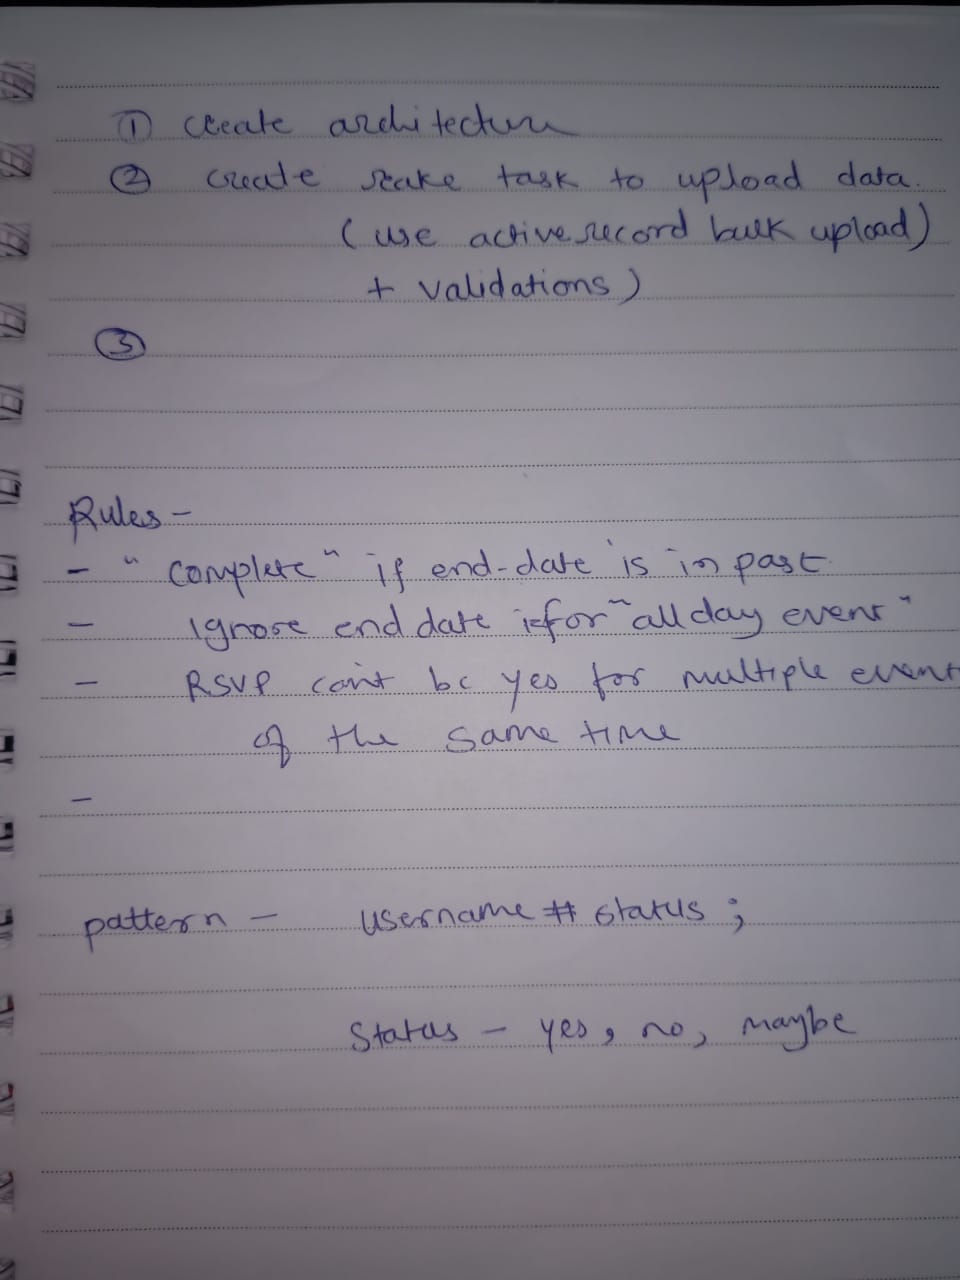 ① create architecture
② create rake task to upload data.
(use activerecord bulk upload)
+ validations)
③
Rules -
- "complete" if end-date is in past
- Ignore end date for "all day event"
- RSVP can't be yes for multiple event
of the same time
-
pattern - username # status ;
Status - yes, no, maybe